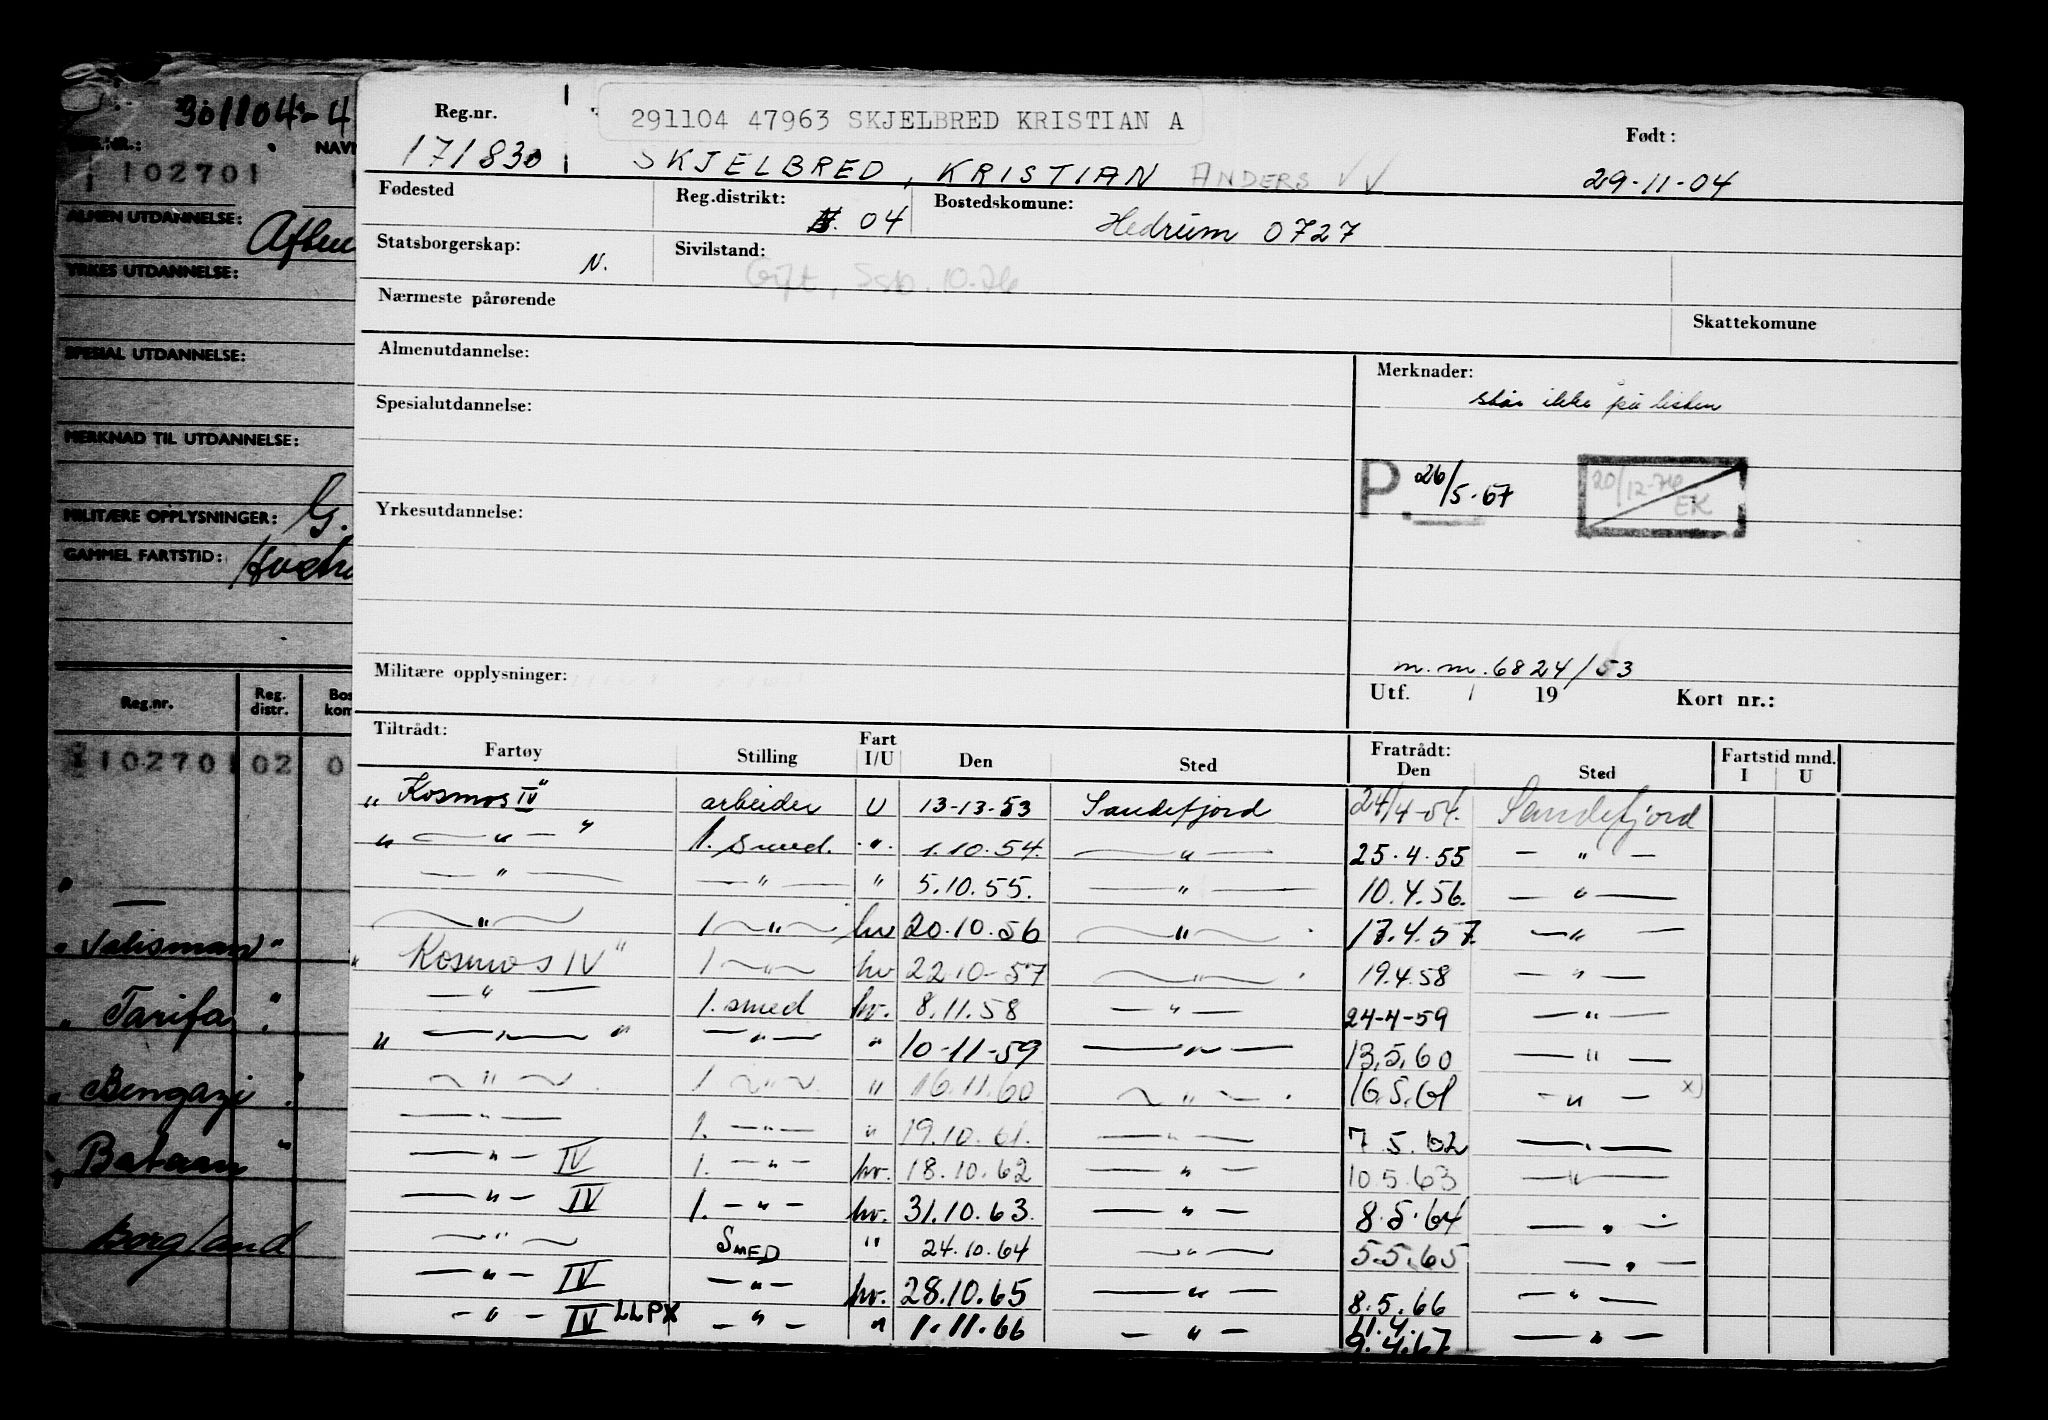 301104-4
NAVN
102701
ALMEN UTDANNELSE:
YRKES UTDANNELSE:
SPESIAL UTDANNELSE:
MERKNAD TIL UTDANNELSE:
MILITÆRE OPPLYSNINGER: G.
GAMMEL FARTSTID:
Reg.nr. Reg. distr. Bos kom
102701 02 0
"Talisman"
"Tarifa"
"Bengazi"
"Bataan"
Borgland
Reg.nr. 291104 47963 SKJELBRED KRISTIAN A Født:
171830 SKJELBRED, KRISTIAN ANDERS V V 29-11-04
Fødested Reg.distrikt: 04 Bostedskomune: Hedrum 0727
Statsborgerskap: N. Sivilstand: Gift, Ssb. 10.76
Nærmeste pårørende
Skattekomune
Almenutdannelse: Merknader:
står ikke på listen
Spesialutdannelse:
P. 26/5-67 20/12-76 EK
Yrkesutdannelse:
m.m. 6824/53
Militære opplysninger: Utf. / 19 Kort nr.:
Tiltrådt: Fratrådt: Fartstid mnd.
Fartøy Stilling Fart I/U Den Sted Den Sted I U
"Kosmos IV" arbeider U 13-13-53 Sandefjord 24/4-54. Sandefjord
" — " — " 1. smed. " 1.10.54. — " — 25.4.55 — " —
— " — — " — " 5.10.55. — " — 10.4.56. — " —
— " — 1 — " — hv 20.10.56 — " — 17.4.57. — " —
"Kosmos IV" 1 — " — hv 22.10-57 — " — 19.4.58 — " —
— " — 1. smed hv. 8.11.58 — " — 24-4-59 — " —
" — " — " — " — " 10-11-59 — " — 13.5.60 — " —
— " — 1. — " — " 16.11.60 — " — 16.5.61 — " — x)
— " — 1. — " — " 19.10.61. — " — 7.5.62 — " —
— " — IV 1. — " — hv. 18.10.62 — " — 10.5.63 — " —
— " — IV 1. — " — hv. 31.10.63. — " — 8.5.64 — " —
— " — SMED " 24.10.64 — " — 5.5.65 — " —
— " — IV — " — hv. 28.10.65 — " — 8.5.66 — " —
— " — IV LLPX — " — " 1.11.66 — " — 11.4. 9.4.67 — " —